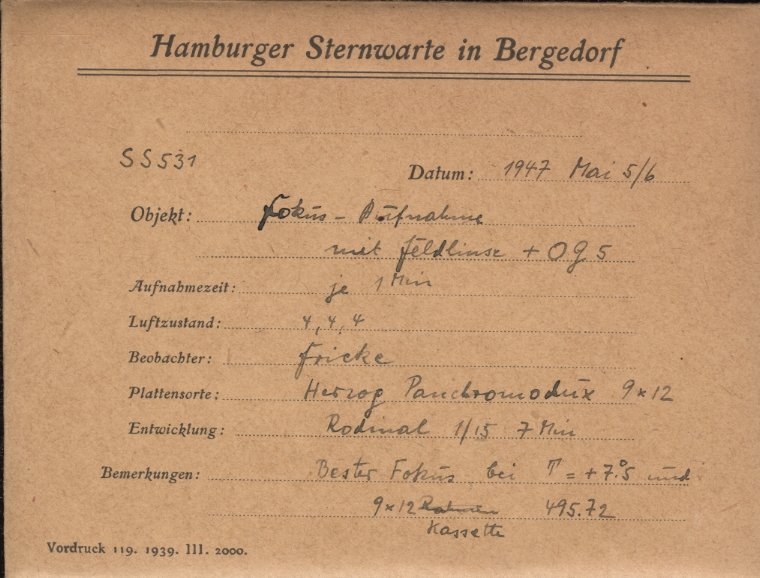 Hamburger Sternwarte in Bergedorf
SS531
Datum: 1947 Mai 5/6
Objekt: Fokus - Aufnahme
mit Feldlinse + OG 5
Aufnahmezeit: je 1 Min
Luftzustand: 4, 4, 4
Beobachter: Fricke
Plattensorte: Herzog Panchromodux 9×12
Entwicklung: Rodinal 1/15 7 Min
Bemerkungen: Bester Fokus bei T = +7°.5 und
9×12 Rahmen 495.72
Kassette
Vordruck 119. 1939. III. 2000.